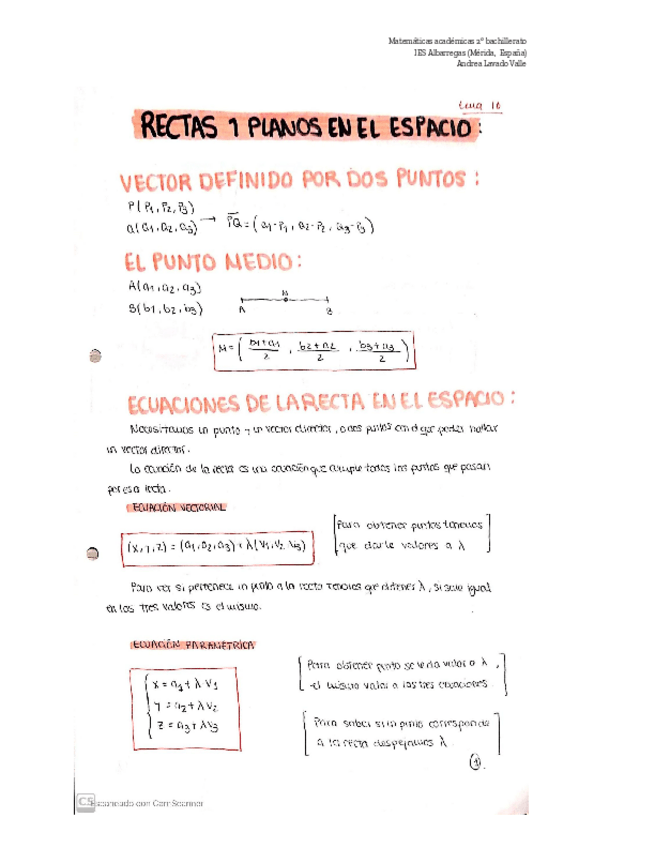 Matemáticas académicas 2º bachillerato
IES Albarregas (Mérida, España)
Andrea Lavado Valle
tema 16
RECTAS Y PLANOS EN EL ESPACIO:
VECTOR DEFINIDO POR DOS PUNTOS:
P(P1, P2, P3)
Q(q1, q2, q3) → PQ = (q1-P1, q2-P2, q3-P3)
EL PUNTO MEDIO:
A(a1, a2, a3)
B(b1, b2, b3)
M
A B
M = ( b1+a1/2 , b2+a2/2 , b3+a3/2 )
ECUACIONES DE LA RECTA EN EL ESPACIO:
Necesitamos un punto y un vector director, o dos puntos con el que poder hallar
un vector director.
La ecuación de la recta es una ecuación que cumple todos los puntos que pasan
por esa recta.
ECUACIÓN VECTORIAL
(x, y, z) = (a1, a2, a3) + λ(v1, v2, v3)
Para obtener puntos tenemos
que darle valores a λ
Para ver si pertenece un punto a la recta tenemos que obtener λ, si sale igual
en los tres valores es el mismo.
ECUACIÓN PARAMÉTRICA
x = a1 + λ v1
y = a2 + λ v2
z = a3 + λ v3
Para obtener punto se le da valor a λ,
el mismo valor a las tres ecuaciones
Para saber si un punto corresponde
a la recta despejamos λ.
1
CS Escaneado con CamScanner